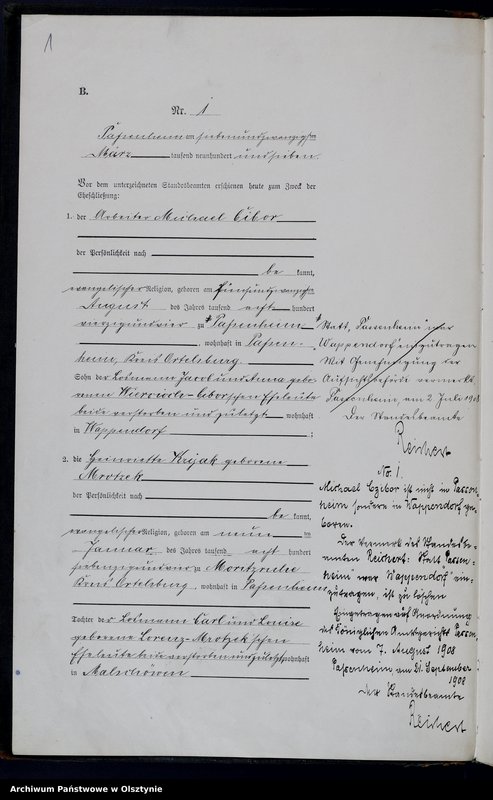 1
B.
Nr. 1
Passenheim am siebenundzwanzigsten
März tausend neunhundert und sieben.
Vor dem unterzeichneten Standesbeamten erschienen heute zum Zweck der
Eheschließung:
1. der Arbeiter Michael Cibor
der Persönlichkeit nach
be kannt,
evangelischer Religion, geboren am fünfundzwanzigsten
August des Jahres tausend acht hundert
vierzig und vier zu Passenheim
, wohnhaft in Passen-
heim, Kreis Ortelsburg.
Sohn der Losmann Jacob und Anna gebo-
rene Cibor'schen Eheleute
beide verstorben und zuletzt wohnhaft
in Wappendorf ;
2. die Henriette Krijak geborene
Mrotzek
der Persönlichkeit nach
be kannt,
evangelischer Religion, geboren am neun ten
Januar des Jahres tausend acht hundert
siebenzig und zu Moritzruhe
Kreis Ortelsburg, wohnhaft in Passenheim
Tochter der Losmann Carl und Louise
geborene Lorenz-Mrotzek'schen
Eheleute beide verstorben und zuletzt wohnhaft
in Malschöwen
Statt „Passenheim" war
Wappendorf einzutragen
Mit Genehmigung der
Aufsichtsbehörde vermerkt.
Passenheim, am 2 Juli 1908
Der Standesbeamte
Reichert
No. 1.
Michael Czibor ist nicht in Passen-
heim sondern in Wappendorf ge-
boren.
Der Vermerk des Standesbe-
amten Reichert: Statt Passen-
heim war Wappendorf ein-
zutragen, ist zu löschen
Eingetragen auf Anordnung
des Königlichen Amtsgerichts Passen-
heim vom 7. August 1908
Passenheim, am 21. September
1908
Der Standesbeamte
Reichert
Archiwum Państwowe w Olsztynie